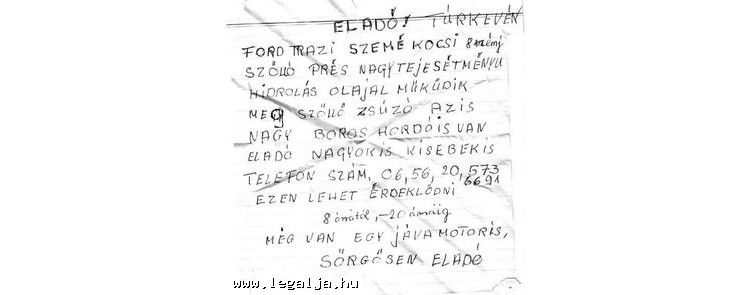 ELADÓ! TÚRKEVÉN
FORD TRAZI SZEMÉ KOCSI 8 szémj
SZŐLLŐ PRÉS NAGYTEJESÉTMÉNYU
HIDROLÁS OLAJAL MŰKŰDIK
MEG SZŐLLŐ ZSÚZÓ AZIS
NAGY BOROS HORDÓIS VAN
ELADÓ NAGYOKIS KISEBEKIS
TELEFON SZÁM, 06, 56, 20, 573
6691
EZEN LEHET ÉRDEKLŐDNI
8 órától, -20 óráig
MÉG VAN EGY JÁVAMOTORIS,
SŐRGŐSEN ELADÓ
www.legalja.hu